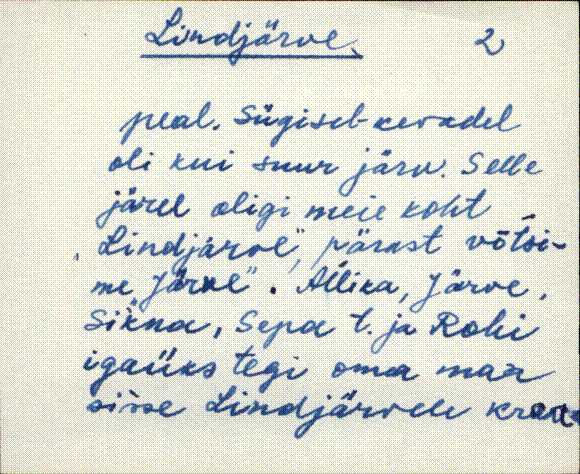 Lindjärve. 2
peal. Sügisel-kevadel
oli kui suur järv. Selle
järel oligi meie koht
„Lindjärve", pärast võtsi-
me Järve". Allika, Järve,
Sikna, Sepa t. ja Rohi
igaüks tegi oma maa
sisse Lindjärvele kraa